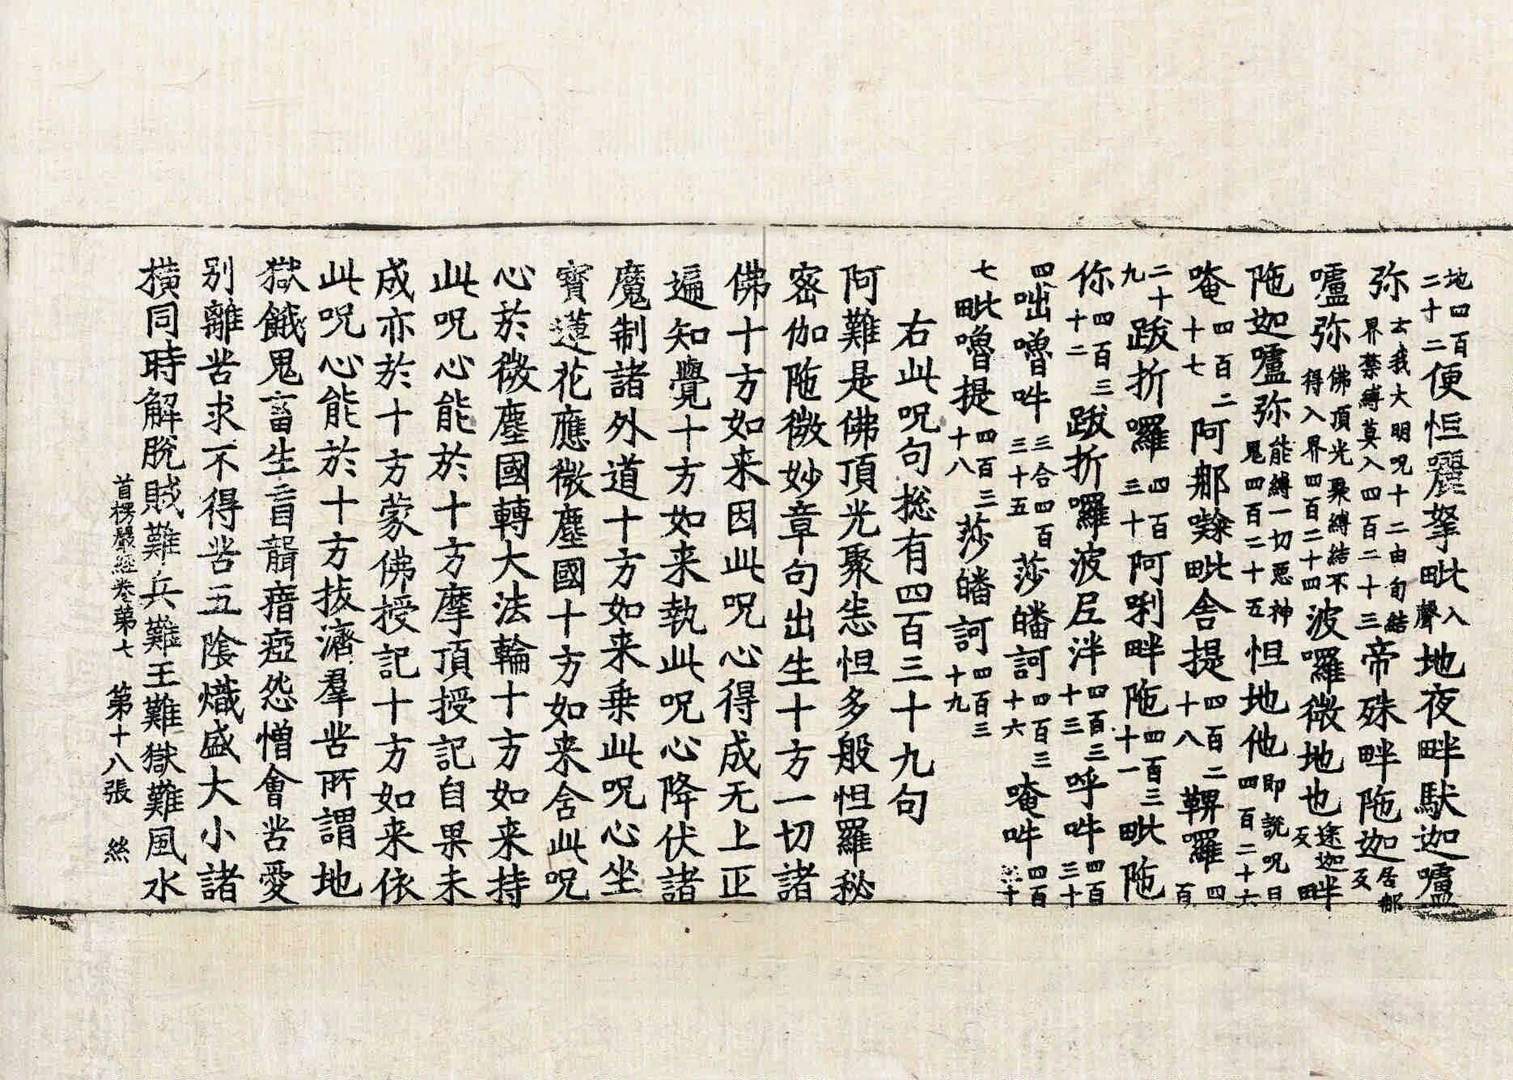 地四百二十二便怛麗拏毗入聲地夜畔馱迦嚧
弥云我大明呪十二由旬結界禁縛莫入四百二十三帝殊畔陁迦居那反
嚧弥佛頂光聚縛結不得入界四百二十四波囉微地也途迦反畔
陁迦嚧弥能縛一切悪神鬼四百二十五怛地他即説呪曰四百二十六
唵四百二十七阿那㘑毗舍提四百二十八鞞囉四百
二十九跋折囉四百三十阿唎畔陁四百三十一毗陁
你四百三十二跋折囉波尼泮四百三十三呼吽四百三十
四咄嚕吽三合四百三十五莎皤訶四百三十六唵吽四百三十
七毗嚕提四百三十八莎皤訶四百三十九
右此呪句捴有四百三十九句
阿難是佛頂光聚悉怛多般怛羅秘
密伽陁微妙章句出生十方一切諸
佛十方如来因此呪心得成无上正
遍知覺十方如来執此呪心降伏諸
魔制諸外道十方如来乗此呪心坐
寳蓮花應微塵國十方如来含此呪
心於微塵國轉大法輪十方如来持
此呪心能於十方摩頂授記自果未
成亦於十方蒙佛授記十方如来依
此呪心能於十方拔濟羣苦所謂地
獄餓鬼畜生盲聾瘖瘂怨憎會苦愛
别離苦求不得苦五隂熾盛大小諸
橫同時解脫賊難兵難王難獄難風水
首楞嚴經卷第七 第十八張